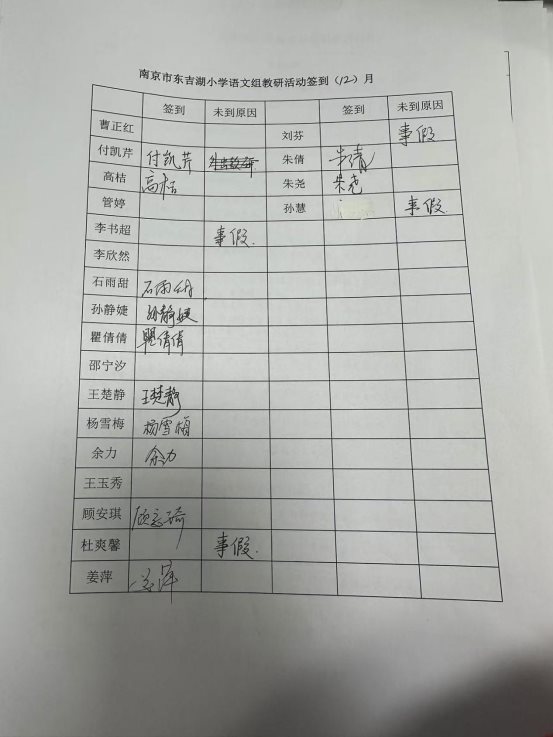 南京市东吉湖小学语文组教研活动签到（12）月
签到 未到原因 签到 未到原因
曹正红 刘芬 事假
付凯芹 付凯芹 朱倩 朱倩
高桔 高桔 朱尧 朱尧
管婷 孙慧 事假
李书超 事假.
李欣然
石雨甜 石雨甜
孙静婕 孙静婕
瞿倩倩 瞿倩倩
邵宁汐
王楚静 王楚静
杨雪梅 杨雪梅
余力 余力
王玉秀
顾安琪 顾安琦
杜爽馨 事假.
姜萍 姜萍